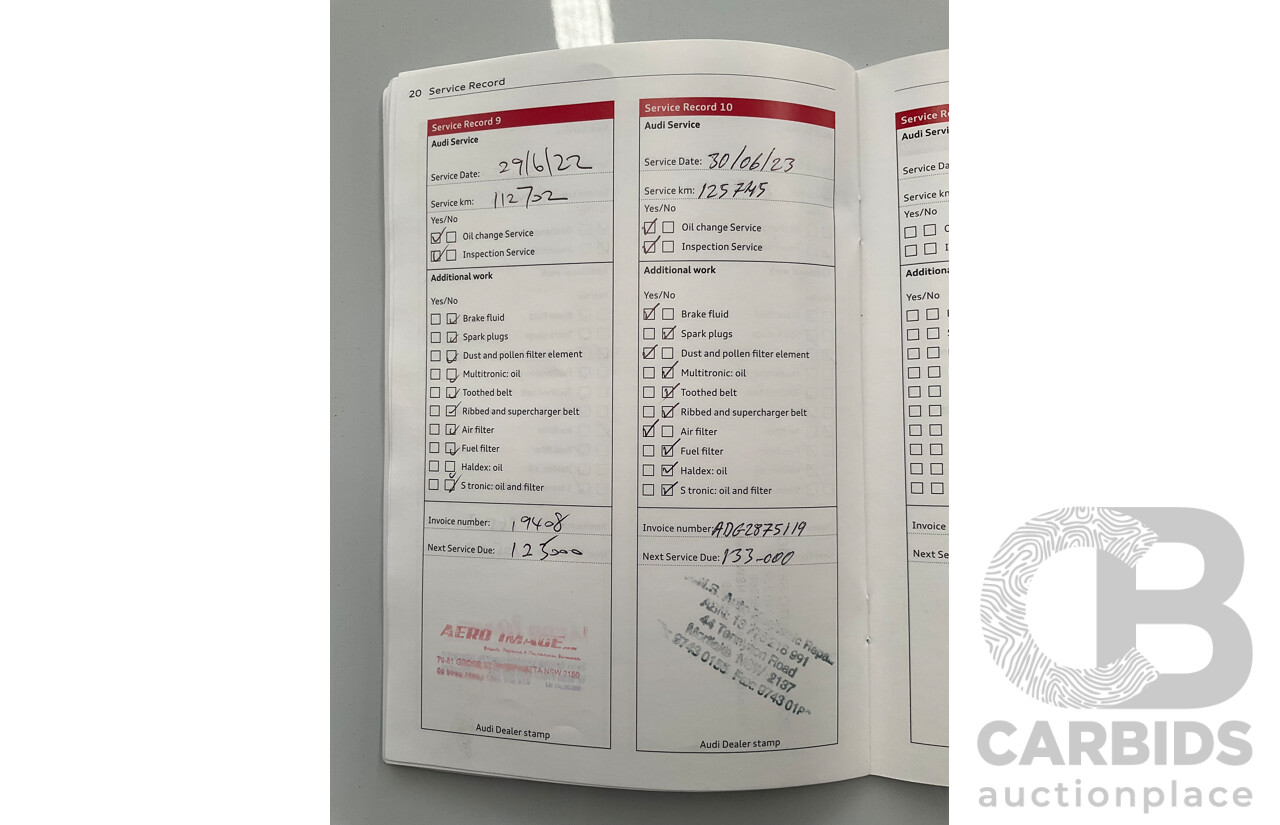 20 Service Record
Service Record 9
Audi Service
Service Date: 29/6/22
Service km: 112702
Yes/No
Oil change Service
Inspection Service
Additional work
Yes/No
Brake fluid
Spark plugs
Dust and pollen filter element
Multitronic: oil
Toothed belt
Ribbed and supercharger belt
Air filter
Fuel filter
Haldex: oil
S tronic: oil and filter
Invoice number: 19408
Next Service Due: 125000
AERO IMAGE
NSW 2150
Audi Dealer stamp
Service Record 10
Audi Service
Service Date: 30/06/23
Service km: 125745
Yes/No
Oil change Service
Inspection Service
Additional work
Yes/No
Brake fluid
Spark plugs
Dust and pollen filter element
Multitronic: oil
Toothed belt
Ribbed and supercharger belt
Air filter
Fuel filter
Haldex: oil
S tronic: oil and filter
Invoice number: ADG2875119
Next Service Due: 133-000
44 Tennyson Road
Mortlake NSW 2137
9743 0185 Fax: 9743
Audi Dealer stamp
Service
Audi
Service
Service
Yes/No
Yes/No
Invoice
Next
CB
CARBIDS
auctionplace